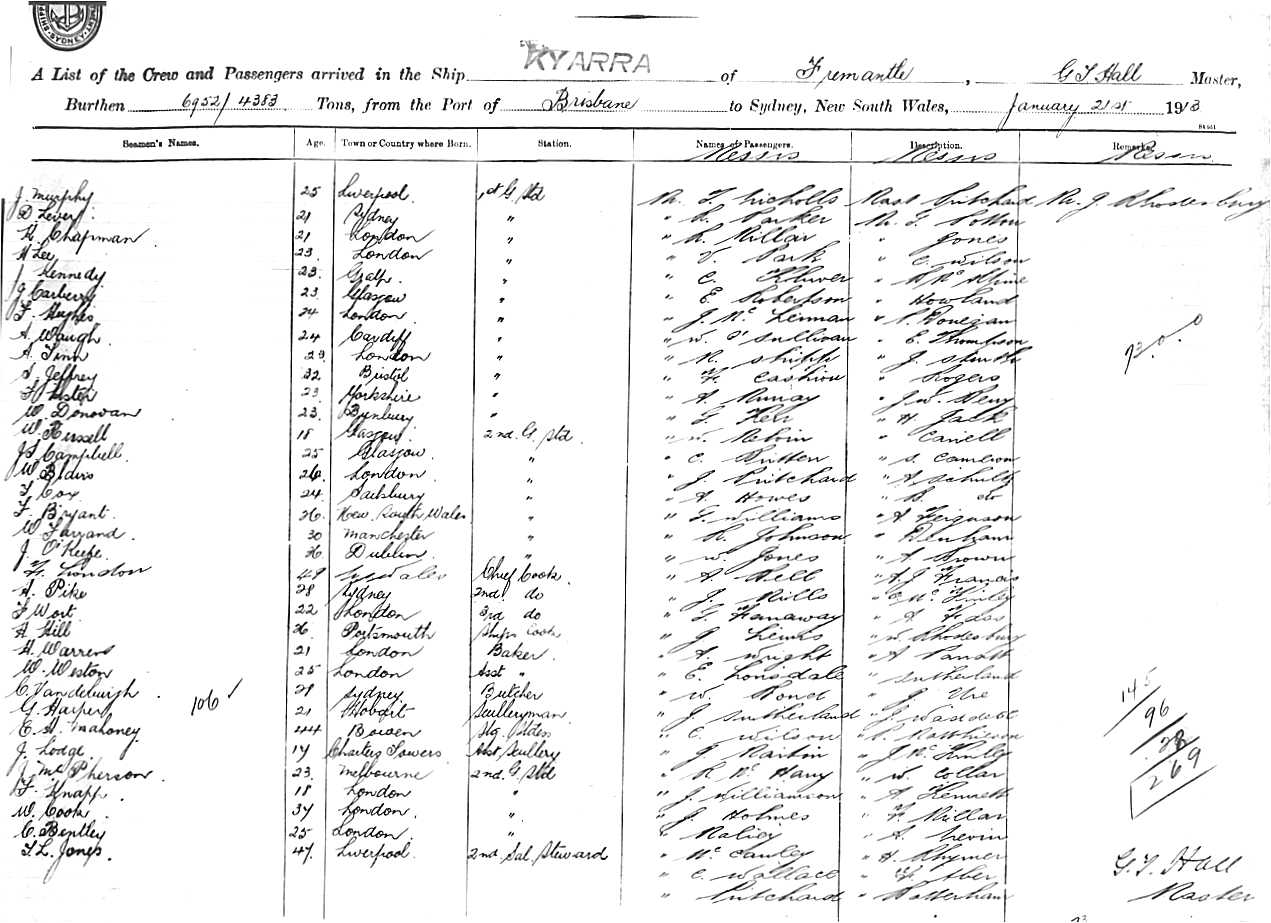 SHIPPING SYDNEY
KYARRA
A List of the Crew and Passengers arrived in the Ship KYARRA of Fremantle, G T Hall Master,
Burthen 6952/4383 Tons, from the Port of Brisbane to Sydney, New South Wales, January 21st 1913
Seamen's Names. Age. Town or Country where Born. Station. Names of Passengers. Description. Remarks.
Messrs Messrs Messrs
J. Murphy 25 Liverpool 1st G Std Mr. T. Nicholls Mast Pritchard Mr. J Rhodesbury
D Lever 21 Sydney " " Parker Mr. G. Potton
H. Chapman 21 London " " Millar " Jones
H Lee 23 London " " V. Park " C. Wilson
J Kennedy 23 " " C. Kluver
J Carberry 23 Glasgow " " E Robertson " Howland
F. Hughes 24 London " " J. Mc Lennan " Donegan
A. Waugh 24 Cardiff " " W. O'Sullivan " E. Thompson
A. Finn 29 London " " R. Shipp " J.
Jeffrey 32 Bristol " " Cashion " Rogers
23 Yorkshire " " A. Murray " J. W.
W. Donovan 23 Bunbury " " G. Kerr " H Jack
W. Russell 18 Glasgow 2nd. G. Std " W. Melvin "
J S Campbell 25 Glasgow " " C. Britten " S. Cameron
W 26 London " " J. Pritchard " A Schultz
F Cox 24 Salisbury " " A. Howes " B. do
F. Bryant 26 New South Wales " " G. Williams " A Ferguson
W Farrand 30 Manchester " " R. Johnson " Denham
J. O'Keefe 36 Dublin " " W. Jones " A Brown
London 49 Wales Chief Cook " A Bell " A. J Francis
A. Pike 28 Sydney 2nd do " J. Mills " Mc Kinley
F Wort 22 London 3rd do " G. Fanaway " A
A Hill 36 Portsmouth Ships Cook " J Lewis " W. Rhodesbury
A. Warren 21 London Baker " A. Wright " A
W. Weston 25 London Asst " " E. Lonsdale " Sutherland
C. Vandeburgh 29 Sydney Butcher " W. Bond " J Ure
G Harper 106 21 Hobart Sculleryman " J Sutherland " J
E A Mahoney 44 Bowen Stg. Stdess " C. Wilson " Matthieson
J. Lodge 17 Charters Towers Asst Scullery " G Martin " J. Mc Kinley
J. McPherson 23 Melbourne 2nd. G Std " R Mc Hary " W. Collar
F. Knapp 18 London " " J Williamson " A Kenneth
W. Cook 34 London " " J Holmes " F Millar
C. Bentley 25 London " " Maliey " A. Levin
T. L. Jones 47 Liverpool 2nd Sal Steward " Mc Cauley " H Rhymer
" C Wallace "
" Pritchard " Hotterham
73.0.0
145
96
28
269
G. T. Hall
Master